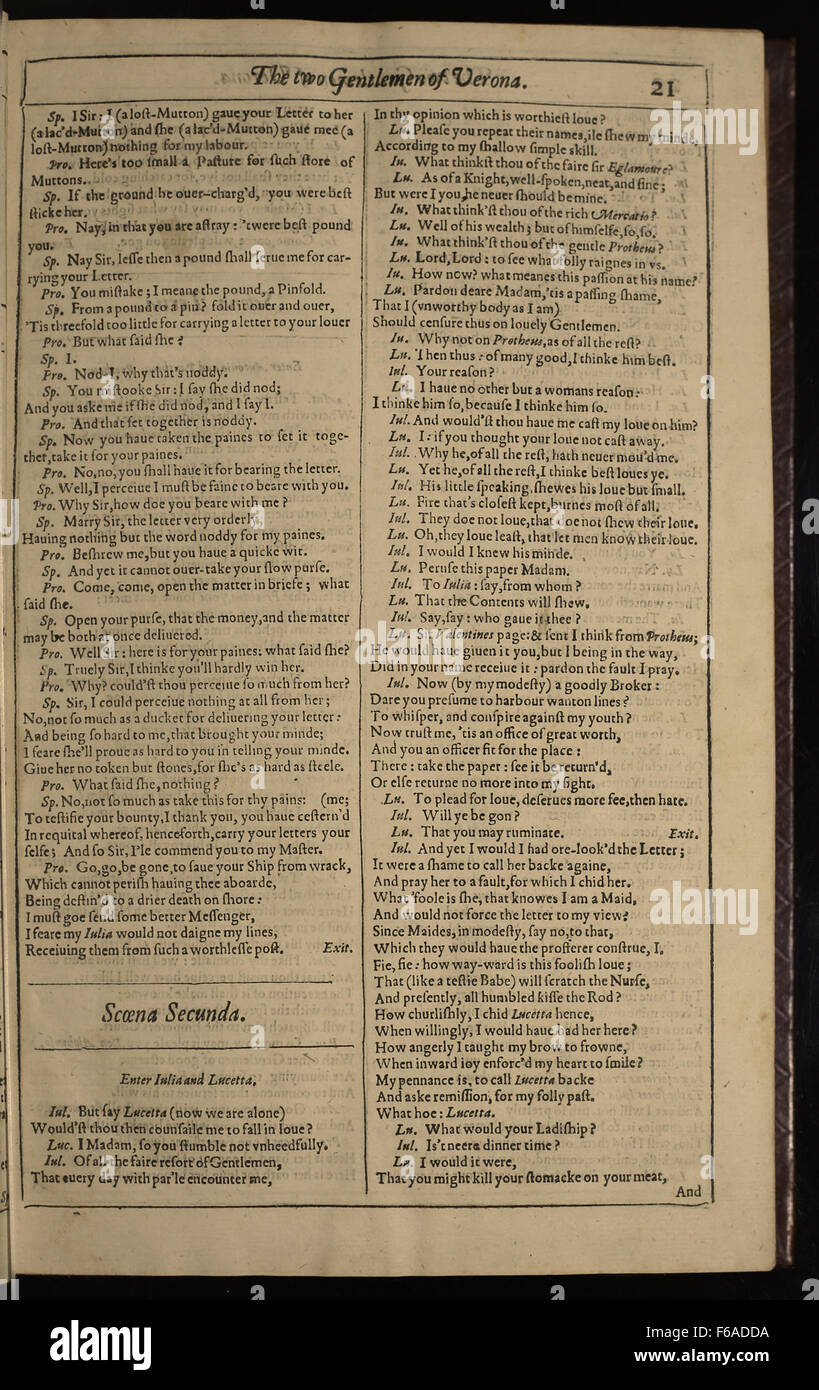 The two Gentlemen of Verona.
21
Sp. I Sir: I (a loſt-Mutton) gaue your Letter to her
(a lac'd-Mutton) and ſhe (a lac'd-Mutton) gaue mee (a
loſt-Mutton) nothing for my labour.
Pro. Here's too ſmall a Paſture for ſuch ſtore of
Muttons.
Sp. If the ground be ouer-charg'd, you were beſt
ſticke her.
Pro. Nay, in that you are aſtray: 'twere beſt pound
you.
Sp. Nay Sir, leſſe then a pound ſhall ſerue me for car-
rying your Letter.
Pro. You miſtake; I meane the pound, a Pinfold.
Sp. From a pound to a pin? fold it ouer and ouer,
'Tis threefold too little for carrying a letter to your louer
Pro. But what ſaid ſhe?
Sp. I.
Pro. Nod-I, why that's noddy.
Sp. You miſtooke Sir: I ſay ſhe did nod;
And you aske me if ſhe did nod, and I ſay I.
Pro. And that ſet together is noddy.
Sp. Now you haue taken the paines to ſet it toge-
ther, take it for your paines.
Pro. No, no, you ſhall haue it for bearing the letter.
Sp. Well, I perceiue I muſt be faine to beare with you.
Pro. Why Sir, how doe you beare with me?
Sp. Marry Sir, the letter very orderly,
Hauing nothing but the word noddy for my paines.
Pro. Beſhrew me, but you haue a quicke wit.
Sp. And yet it cannot ouer-take your ſlow purſe.
Pro. Come, come, open the matter in briefe; what
ſaid ſhe.
Sp. Open your purſe, that the money, and the matter
may be both at once deliuered.
Pro. Well Sir: here is for your paines: what ſaid ſhe?
Sp. Truely Sir, I thinke you'll hardly win her.
Pro. Why? could'ſt thou perceiue ſo much from her?
Sp. Sir, I could perceiue nothing at all from her;
No, not ſo much as a ducket for deliuering your letter:
And being ſo hard to me, that brought your minde;
I feare ſhe'll proue as hard to you in telling your minde.
Giue her no token but ſtones, for ſhe's as hard as ſteele.
Pro. What ſaid ſhe, nothing?
Sp. No, not ſo much as take this for thy pains: (me;
To teſtifie your bounty, I thank you, you haue ceſtern'd
In requital whereof, henceforth, carry your letters your
ſelfe; And ſo Sir, I'le commend you to my Maſter.
Pro. Go, go, be gone, to ſaue your Ship from wrack,
Which cannot periſh hauing thee aboarde,
Being deſtin'd to a drier death on ſhore:
I muſt goe ſend ſome better Meſſenger,
I feare my Iulia would not daigne my lines,
Receiuing them from ſuch a worthleſſe poſt. Exit.
Scœna Secunda.
Enter Iulia and Lucetta.
Iul. But ſay Lucetta (now we are alone)
Would'ſt thou then counſaile me to fall in loue?
Luc. I Madam, ſo you ſtumble not vnheedfully.
Iul. Of all the faire reſort of Gentlemen,
That euery day with par'le encounter me,
In thy opinion which is worthieſt loue?
Lu. Pleaſe you repeat their names, ile ſhew my minde,
According to my ſhallow ſimple skill.
Iu. What thinkſt thou of the faire ſir Eglamoure?
Lu. As of a Knight, well-ſpoken, neat, and fine;
But were I you, he neuer ſhould be mine.
Iu. What think'ſt thou of the rich Mercatio?
Lu. Well of his wealth; but of himſelfe, ſo, ſo.
Iu. What think'ſt thou of the gentle Protheus?
Lu. Lord, Lord: to ſee what folly raignes in vs.
Iu. How now? what meanes this paſſion at his name?
Lu. Pardon deare Madam, 'tis a paſſing ſhame,
That I (vnworthy body as I am)
Should cenſure thus on louely Gentlemen.
Iu. Why not on Protheus, as of all the reſt?
Lu. Then thus: of many good, I thinke him beſt.
Iul. Your reaſon?
Lu. I haue no other but a womans reaſon:
I thinke him ſo, becauſe I thinke him ſo.
Iul. And would'ſt thou haue me caſt my loue on him?
Lu. I: if you thought your loue not caſt away.
Iul. Why he, of all the reſt, hath neuer mou'd me.
Lu. Yet he, of all the reſt, I thinke beſt loues ye.
Iul. His little ſpeaking, ſhewes his loue but ſmall.
Lu. Fire that's cloſeſt kept, burnes moſt of all.
Iul. They doe not loue, that doe not ſhew their loue.
Lu. Oh, they loue leaſt, that let men know their loue.
Iul. I would I knew his minde.
Lu. Peruſe this paper Madam.
Iul. To Iulia: ſay, from whom?
Lu. That the Contents will ſhew.
Iul. Say, ſay: who gaue it thee?
Lu. Sir Valentines page: & ſent I think from Protheus;
He would haue giuen it you, but I being in the way,
Did in your name receiue it: pardon the fault I pray.
Iul. Now (by my modeſty) a goodly Broker:
Dare you preſume to harbour wanton lines?
To whiſper, and conſpire againſt my youth?
Now truſt me, 'tis an office of great worth,
And you an officer fit for the place:
There: take the paper: ſee it be return'd,
Or elſe returne no more into my ſight.
Lu. To plead for loue, deſerues more fee, then hate.
Iul. Will ye be gon?
Lu. That you may ruminate. Exit.
Iul. And yet I would I had ore-look'd the Letter;
It were a ſhame to call her backe againe,
And pray her to a fault, for which I chid her.
What 'foole is ſhe, that knowes I am a Maid,
And would not force the letter to my view?
Since Maides, in modeſty, ſay no, to that,
Which they would haue the profferer conſtrue, I.
Fie, fie: how way-ward is this fooliſh loue;
That (like a teſtie Babe) will ſcratch the Nurſe,
And preſently, all humbled kiſſe the Rod?
How churliſhly, I chid Lucetta hence,
When willingly, I would haue had her here?
How angerly I taught my brow to frowne,
When inward ioy enforc'd my heart to ſmile?
My pennance is, to call Lucetta backe
And aske remiſſion, for my folly paſt.
What hoe: Lucetta.
Lu. What would your Ladiſhip?
Iul. Is't neere dinner time?
Lu. I would it were,
That you might kill your ſtomacke on your meat,
And
alamy stock photo
F6ADDA
www.alamy.com